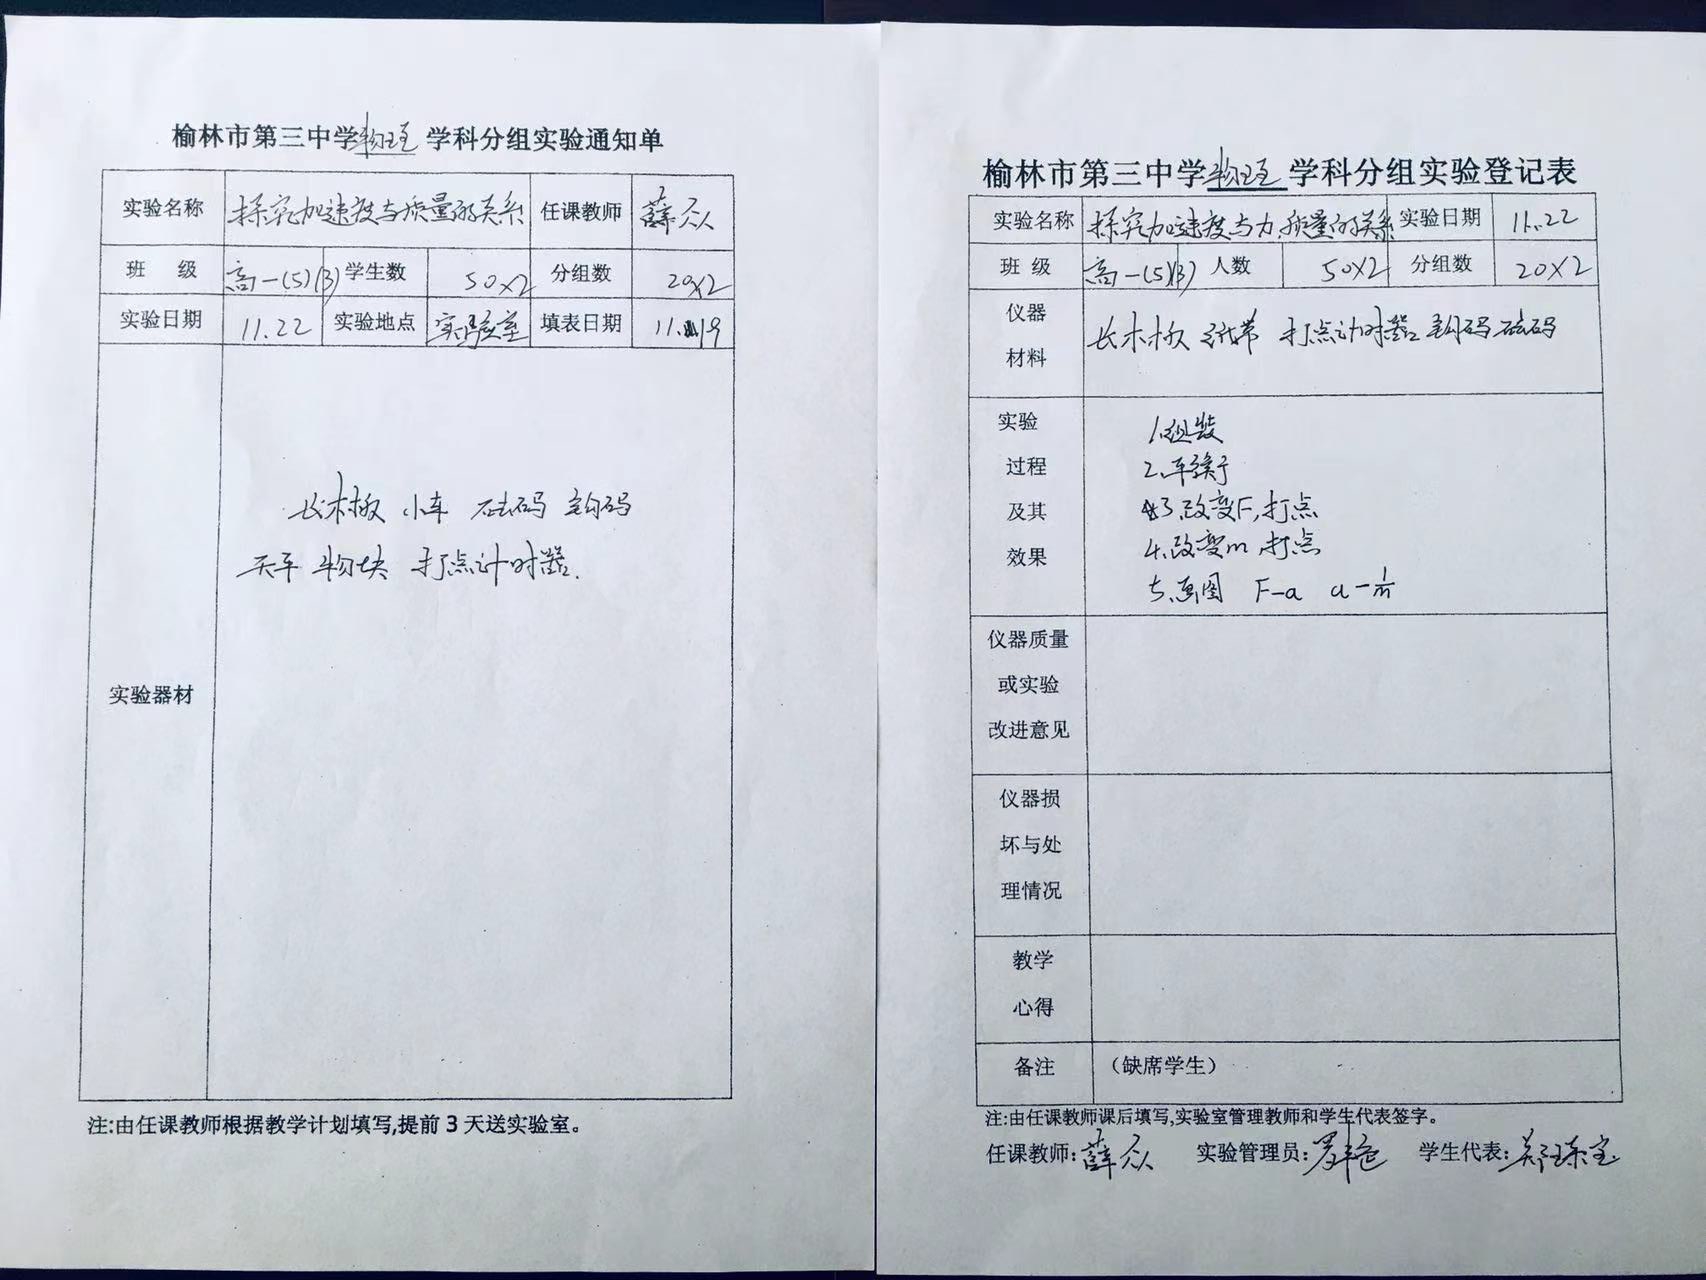 榆林市第三中学物理学科分组实验通知单
实验名称 探究加速度与质量的关系 任课教师 薛众
班 级 高一(5)(3) 学生数 50×2 分组数 20×2
实验日期 11.22 实验地点 实验室 填表日期 11.19
长木板 小车 砝码 钩码
天平 物块 打点计时器.
实验器材
注:由任课教师根据教学计划填写,提前3天送实验室。
榆林市第三中学物理学科分组实验登记表
实验名称 探究加速度与力.质量的关系 实验日期 11.22
班 级 高一(5)(3) 人数 50×2 分组数 20×2
仪器
材料
长木板 纸带 打点计时器 钩码 砝码
实验
过程
及其
效果
1.组装
2.平衡f
3.改变F,打点
4.改变m,打点
5.画图 F-a a-1/m
仪器质量
或实验
改进意见
仪器损
坏与处
理情况
教学
心得
备注 (缺席学生)
注:由任课教师课后填写,实验室管理教师和学生代表签字。
任课教师:薛众 实验管理员: 学生代表: